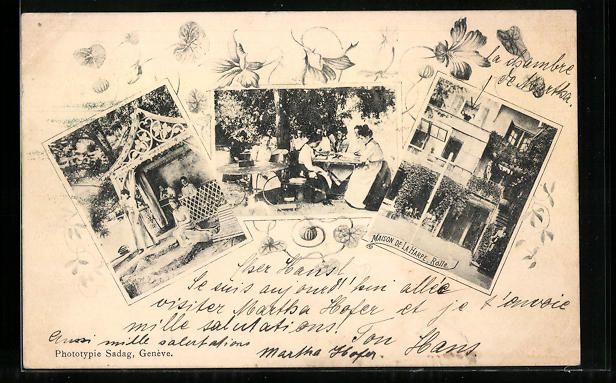 la chambre
de Martha.
MAISON DE LA HARPE, Rolle
Cher Hansl
Je suis aujourd'hui allée
visiter Martha Hofer et je t'envoie
mille salutations! Ton Hans
Aussi mille salutations
Martha Hofer.
Phototypie Sadag, Genève.